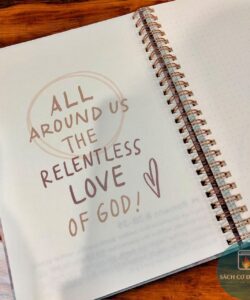 ALL
AROUND US
THE
RELENTLESS
LOVE
OF GOD!